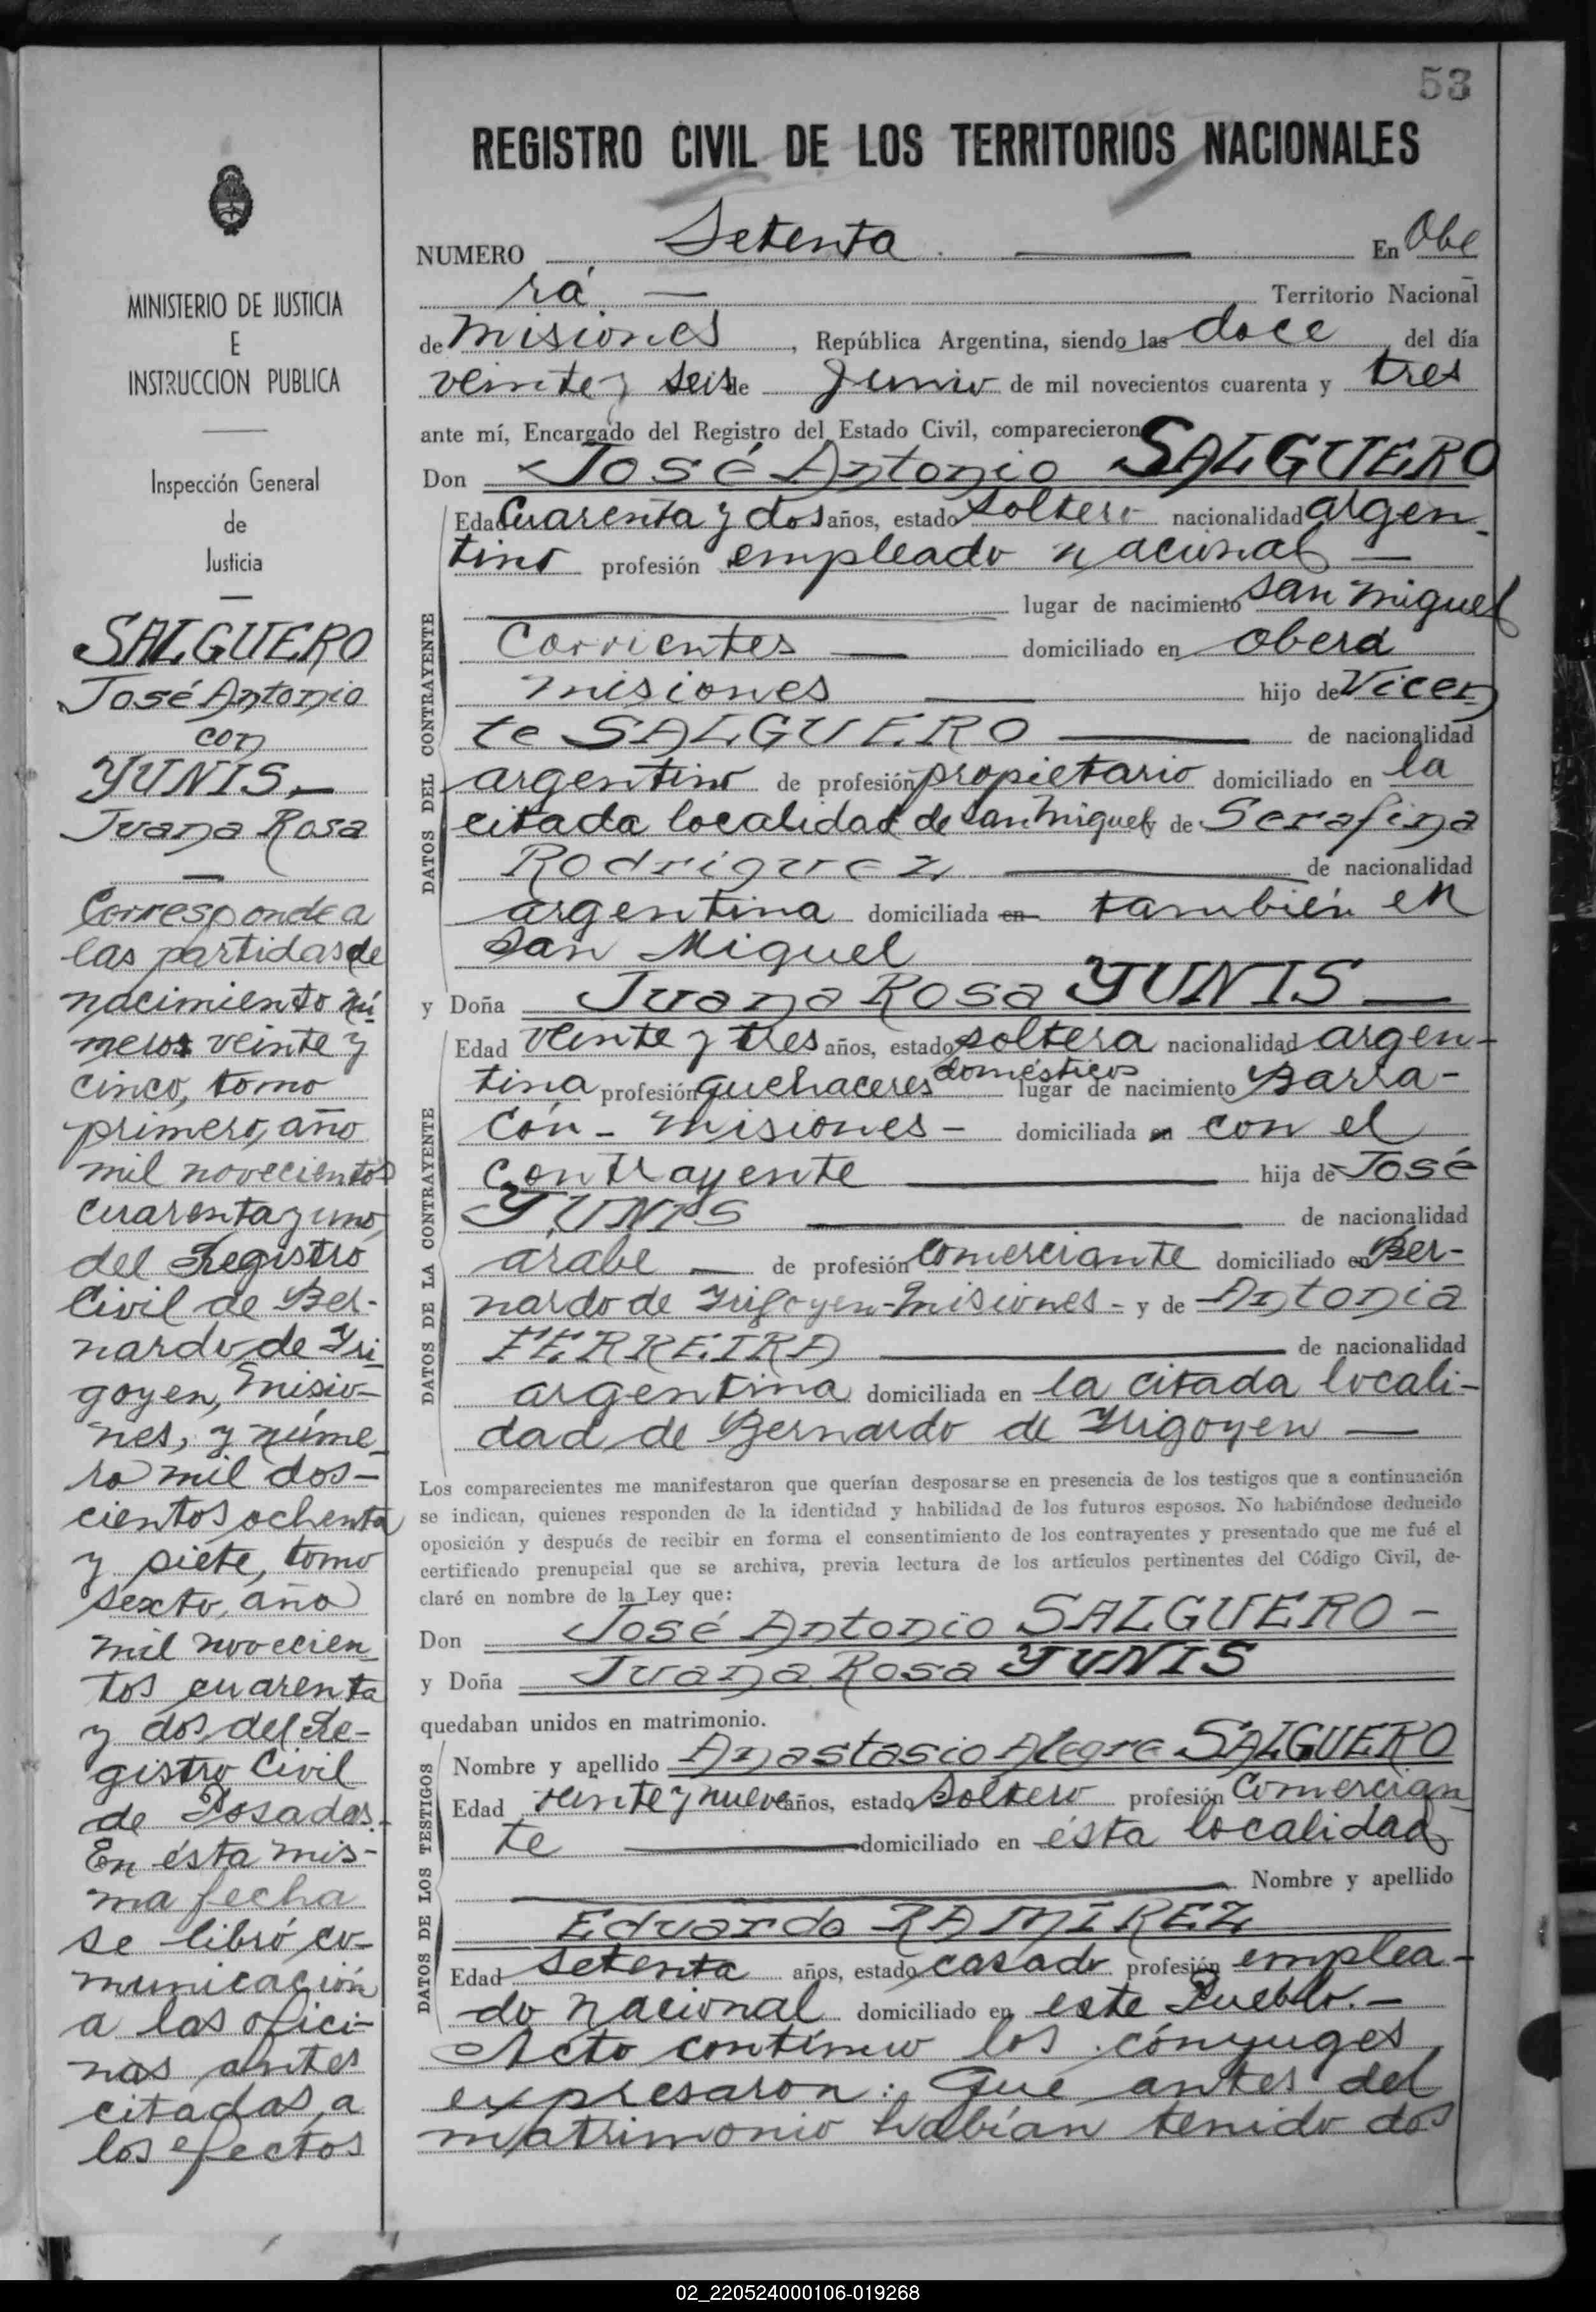 53
REGISTRO CIVIL DE LOS TERRITORIOS NACIONALES
MINISTERIO DE JUSTICIA
E
INSTRUCCION PUBLICA
Inspección General
de
Justicia
SALGUERO
José Antonio
con
YUNIS
Juana Rosa
Corresponde a
las partidas de
nacimiento nú
meros veinte y
cinco, tomo
primero, año
mil novecientos
cuarenta y uno,
del Registro
Civil de Ber-
nardo de Yri
goyen, Misio-
nes, y núme
ro mil dos-
cientos ochenta
y siete, tomo
sexto, año
mil novecien
tos cuarenta
y dos, del Re-
gistro Civil
de Posadas.-
En ésta mis-
ma fecha
se libró co-
municación
a las ofici-
nas antes
citadas, a
los efectos
NUMERO Setenta. En Obe
rá Territorio Nacional
de Misiones, República Argentina, siendo las doce del día
veinte y seis de Junio de mil novecientos cuarenta y tres
ante mí, Encargado del Registro del Estado Civil, comparecieron
Don José Antonio SALGUERO
DATOS DEL CONTRAYENTE
Edad Cuarenta y dos años, estado soltero nacionalidad argen-
tino profesión empleado nacional
lugar de nacimiento San Miguel
Corrientes domiciliado en Oberá
Misiones hijo de Vicen
te SALGUERO de nacionalidad
argentino de profesión propietario domiciliado en la
citada localidad de San Miguel y de Serafina
Rodriguez de nacionalidad
argentina domiciliada en también en
San Miguel
y Doña Juana Rosa YUNIS
DATOS DE LA CONTRAYENTE
Edad veinte y tres años, estado soltera nacionalidad argen-
tina profesión quehaceres domésticos lugar de nacimiento Barra-
cón - Misiones - domiciliada en con el
contrayente hija de José
YUNIS de nacionalidad
árabe de profesión comerciante domiciliado en Ber-
nardo de Yrigoyen-Misiones - y de Antonia
FERREIRA de nacionalidad
argentina domiciliada en la citada locali-
dad de Bernardo de Yrigoyen
Los comparecientes me manifestaron que querían desposarse en presencia de los testigos que a continuación
se indican, quienes responden de la identidad y habilidad de los futuros esposos. No habiéndose deducido
oposición y después de recibir en forma el consentimiento de los contrayentes y presentado que me fué el
certificado prenupcial que se archiva, previa lectura de los artículos pertinentes del Código Civil, de-
claré en nombre de la Ley que:
Don José Antonio SALGUERO -
y Doña Juana Rosa YUNIS
quedaban unidos en matrimonio.
DATOS DE LOS TESTIGOS
Nombre y apellido Anastasio Alegre SALGUERO
Edad veinte y nueve años, estado soltero profesión Comercian
te domiciliado en ésta localidad
Nombre y apellido
Eduardo RAMIREZ
Edad setenta años, estado casado profesión emplea-
do nacional domiciliado en este Pueblo.-
Acto contínuo los cónyuges
expresaron: Que antes del
matrimonio habían tenido dos
02_220524000106-019268